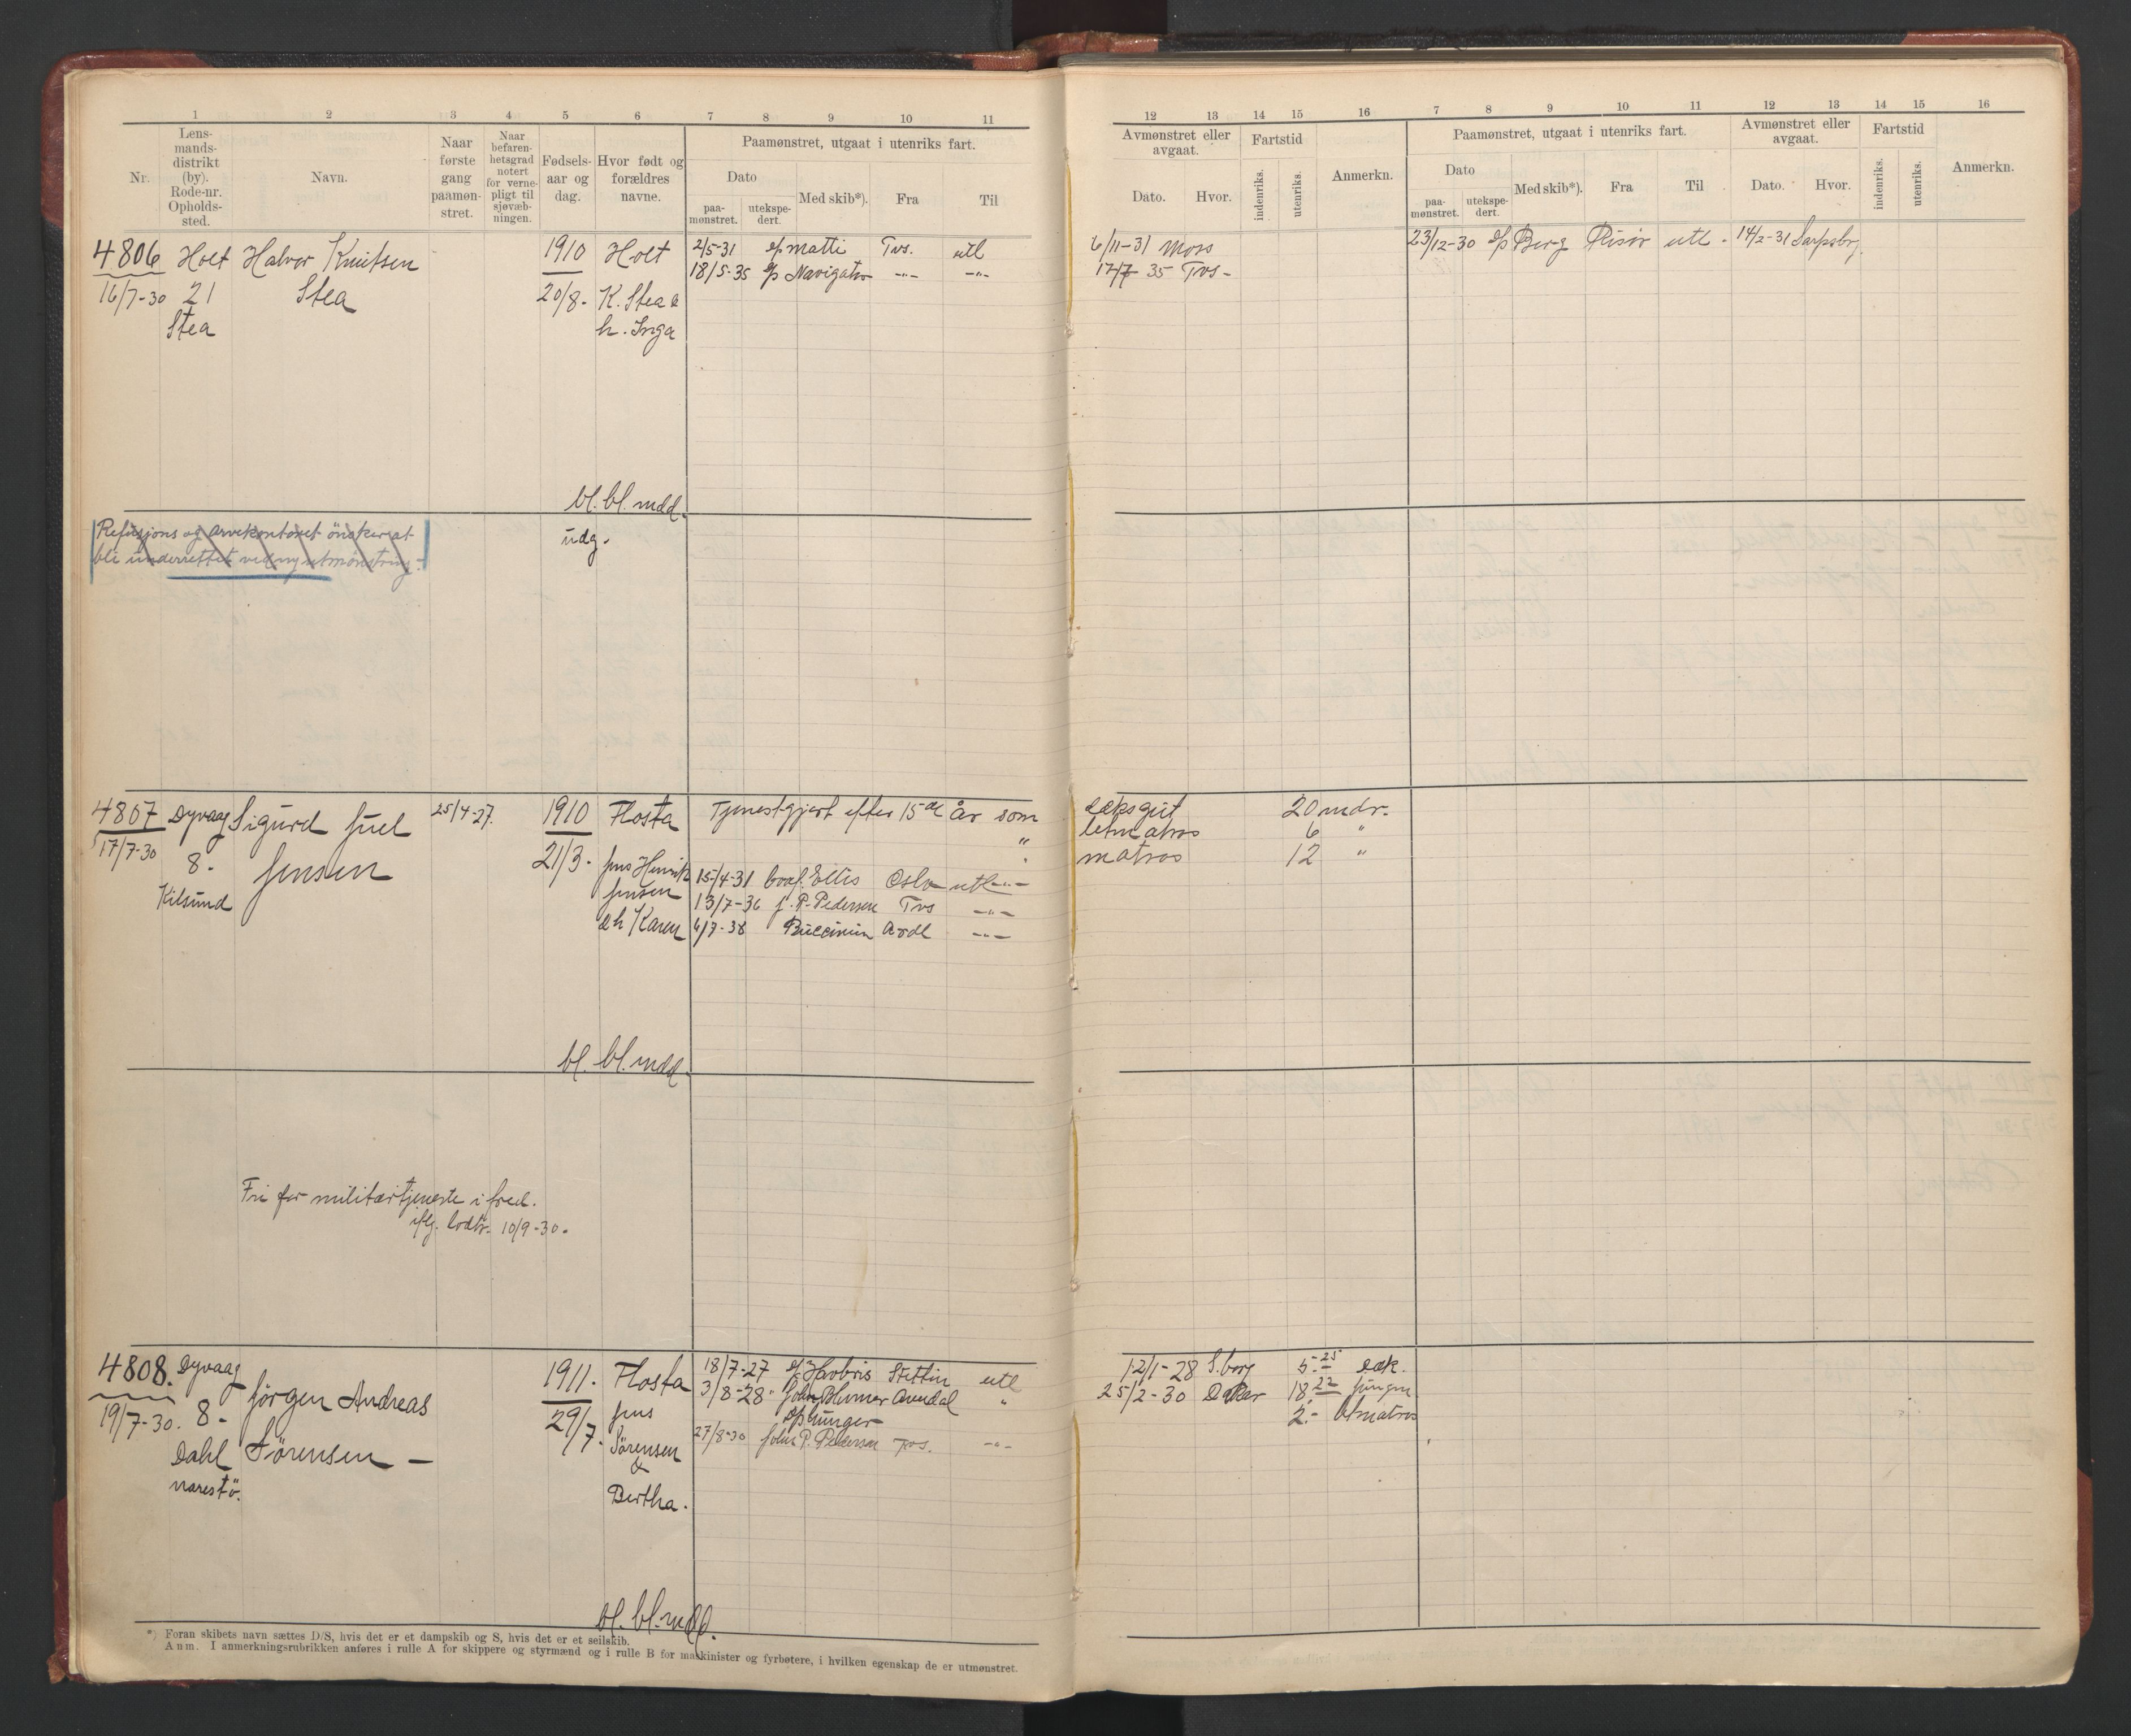 1 2 3 4 5 6 7 8 9 10 11
Nr. Lensmandsdistrikt (by). Rode-nr. Opholdssted. Navn. Naar første gang paamønstret. Naar befarenhetsgrad notert for vernepligt til sjøvæbningen. Fødselsaar og dag. Hvor født og forældres navne. Paamønstret, utgaat i utenriks fart.
Dato Med skib*). Fra Til
paamønstret. utekspedert.
4806 Holt Halvor Knutsen 1910 Holt 2/5-31 Matti Tvs. utl
16/7-30 21 Stea 20/8- K. Stea & 18/5-35 Navigator -"- -"-
Stea h. Inga
bl. bl. mdd.
Refusjons og arvekontoret önsker at
bli underrettet ved ny utmönstring.
udg.
4807 Dyvaag Sigurd Juel 25/4-27. 1910 Flosta Tjenestgjort efter 15de År som
17/7-30 8- Jensen 21/3- Jens Henrik "
Kilsund Jensen 15/4-31 Ellis Oslo utl -"-
& h Karen 13/7-36 J. P. Pedersen Tvs -"-
6/7-38 Buccinum Ardl -"-
bl. bl. mdd.
Fri for militærtjeneste i fred.
iflg. lodtr. 10/9-30.
4808. Dyvaag Jörgen Andreas 1911. Flosta 18/7-27 Havbris Stettin utl
19/7-30. 8- Sörensen - 29/7. Jens 3/8-28 John Blumer Arendal "
Dahl Sörensen
Narestö. & 27/8-30 John P. Pedersen Tvs. -"-
Bertha.
bl. bl. mdd.
*) Foran skibets navn sættes D/S, hvis det er et dampskib og S, hvis det er et seilskib.
Anm. I anmerkningsrubrikken anføres i rulle A for skippere og styrmænd og i rulle B for maskinister og fyrbøtere, i hvilken egenskap de er utmønstret.
12 13 14 15 16 7 8 9 10 11 12 13 14 15 16
Avmønstret eller avgaat. Fartstid Anmerkn. Paamønstret, utgaat i utenriks fart. Avmønstret eller avgaat. Fartstid Anmerkn.
Dato. Hvor. indenriks. utenriks. Dato Med skib*). Fra Til Dato. Hvor. indenriks. utenriks.
paamønstret. utekspedert.
6/11-31 Moss 23/12-30 Berg Risör utl. 14/2-31 Sarpsbrg.
17/7 35 Tvs-
dæksgut 20 mdr.
letmatros 6 "
matros 12 "
12/1-28 S.borg 5.25 dæk.
25/2-30 Dakar 18.22 jungm
2.- ltmatros